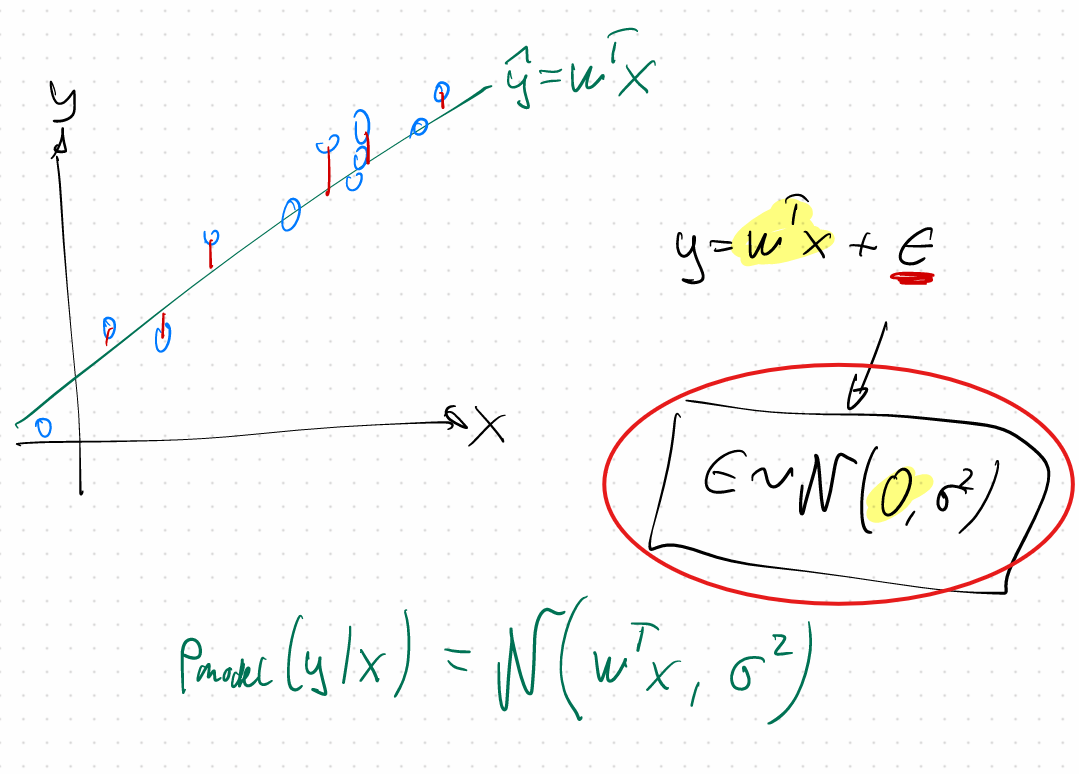 ŷ = wᵀx
y
x
y = wᵀx + ϵ
ϵ ~ N(0, σ²)
Pmodel(y|x) = N(wᵀx, σ²)